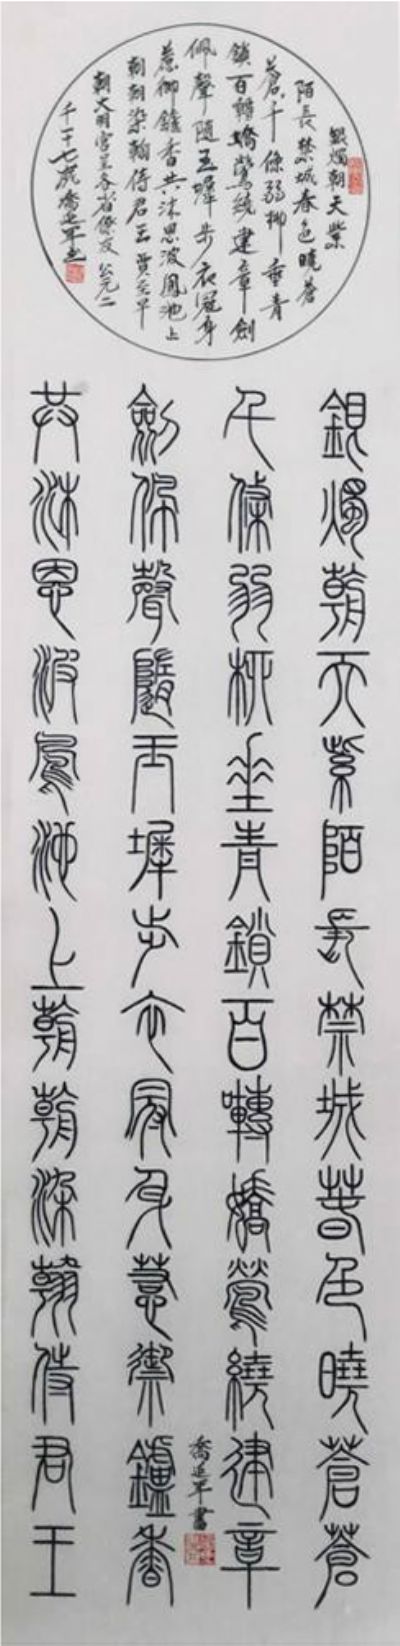 銀燭朝天紫
陌長禁城春色曉蒼
蒼千條弱柳垂青
鎖百囀嬌鶯繞建章劍
佩聲隨玉墀步衣冠身
惹御鑪香共沐恩波鳳池上
朝朝染翰侍君王 賈至早
朝大明宮呈各省僚友 公元二
千一十七 喬延
銀燭朝天紫陌長禁城春色曉蒼蒼
千條弱柳垂青鎖百囀嬌鶯繞建章
喬延 書
劍佩聲隨玉墀步衣冠身惹御鑪香
共沐恩波鳳池上朝朝染翰侍君王